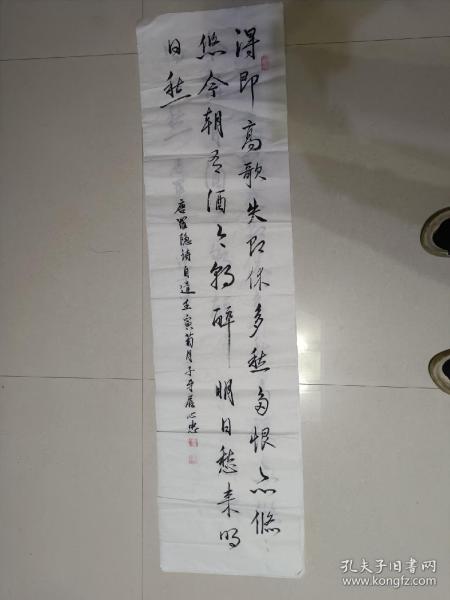 得即高歌失即休多愁多恨亦悠
悠今朝有酒今朝醉明日愁来明
日愁
唐罗隐诗自遣壬寅菊月于守居心忠
孔夫子旧书网
www.kongfz.com